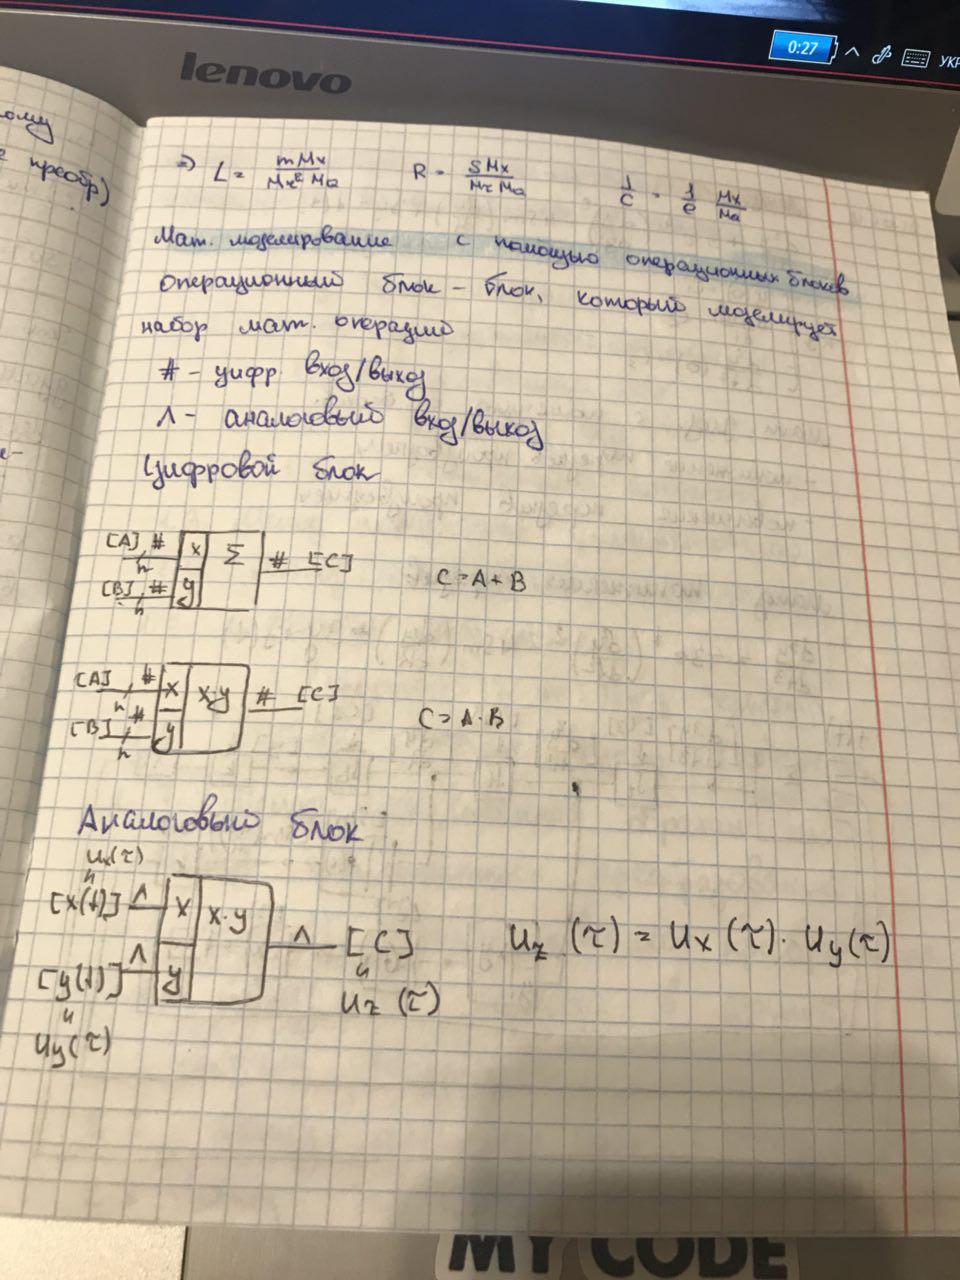 0:27
УКР
lenovo
ому
преобр)
=> L = mMx / Mτ² Mq   R = SMx / Mτ Mq   1/C = 1/e Mx/Mq
Мат. моделирование с помощью операционных блоков
Операционный блок - блок, который моделирует
набор мат. операций
# - цифр. вход/выход
Λ - аналоговый вход/выход
Цифровой блок
[A] # x Σ # [C]
n
[B] # y
n
C = A + B
[A] # x x·y # [C]
n
[B] # y
n
C = A · B
Аналоговый блок
Ux(τ)
[x(t)] Λ x x·y Λ [C]
[y(t)] Λ y
Uz (τ)
Uy(τ)
Uz (τ) = Ux (τ) · Uy(τ)
MY CODE